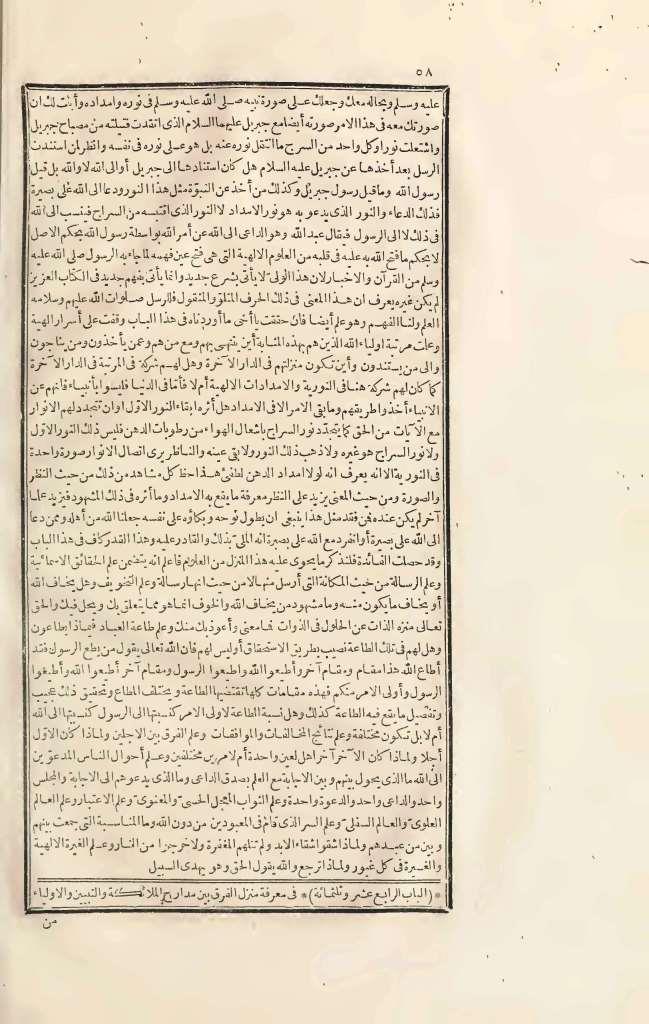 ٥٨
عليه وسلم وبحاله معك وجعلك على صورة نبيه صلى الله عليه وسلم فى نوره وامداده وأبنت لك ان
صورتك معه فى هذا الامر صورته أيضا مع جبريل عليهما السلام الذى اتقدت فتيلته من مصباح جبريل
واشتعلت نورا وكل واحد من السرج ما انتقل نوره عنه بل هو على نوره فى نفسه وانظر لمن استندت
الرسل بعد أخذها عن جبريل عليه السلام هل كان استنادها الى جبريل أو الى الله لا والله بل قيل
رسول الله وما قيل رسول جبريل وكذلك من أخذ عن النبوة مثل هذا النور ودعا الى الله على بصيرة
فذلك الدعاء والنور الذى يدعو به هو نور الامداد لا النور الذى اقتبسه من السراج فينسب الى الله
فى ذلك لا الى الرسول فيقال عبد الله وهو الداعى الى الله عن أمر الله بواسطة رسول الله بحكم الاصل
لا بحكم ما فتح الله به عليه فى قلبه من العلوم الالهية التى هى فتح عين فهمه لما جاء به الرسول صلى الله عليه
وسلم من القرآن والاخبار لان هذا الولى لا يأتى بشرع جديد وانما يأتى بفهم جديد فى الكتاب العزيز
لم يكن غيره يعرف ان هذا المعنى فى ذلك الحرف المتلو والمنقول فللرسل صلوات الله عليهم وسلامه
العلم ولنا الفهم وهو علم أيضا فان حققت يا أخى ما أوردناه فى هذا الباب وقفت على أسرار الهية
وعلمت مرتبة اولياء الله الذين هم بهذه المثابة أين ينتهى بهم ومع من هم وعمن يأخذون ومن يناجون
والى من يستندون وأين تكون منزلتهم فى الدار الآخرة وهل لهم شركة فى المرتبة فى الدار الآخرة
كما كان لهم شركة هنا فى النورية والامدادات الالهية أم لا فأما فى الدنيا فليسوا بأنبياء فانهم عن
الانبياء أخذوا طريقهم وما بقى الامر الا فى الامداد هل أثره ابقاء النور الاول او ان تتجدد لهم الانوار
مع الآيات من الحق كما يتجدد نور السراج باشعال الهواء من رطوبات الدهن فليس ذلك النور الاول
ولا نور السراج هو غيره ولا ذهب ذلك النور ولا بقى عينه والناظر يرى اتصال الانوار صورة واحدة
فى النورية الا انه يعرف انه لولا امداد الدهن لطفئ هذا حظ كل مشاهد من ذلك من حيث النظر
والصورة ومن حيث المعنى يزيد على النظر معرفة ما يقع به الامداد وما أثره فى ذلك المشهود فيزيد علما
آخر لم يكن عنده فمن فقد مثل هذا ينبغى ان يطول نوحه وبكاؤه على نفسه جعلنا الله من أهله وممن دعا
الى الله على بصيرة أو انفرد مع الله على بصيرة انه الملى بذلك والقادر عليه وهذا القدر كاف فى هذا الباب
وقد حصلت الفائدة فلنذكر ما يحوى عليه هذا المنزل من العلوم فاعلم انه يتضمن علم الحقائق الاسمائية
وعلم الرسالة من حيث المكانة التى أرسل منها لا من حيث انها رسالة وعلم التخويف وهل يخاف الله
أو يخاف ما يكون منه وما مشهود من يخاف الله والخوف انما هو مما يتعلق بك ويحل فيك والحق
تعالى منزه الذات عن الحلول فى الذوات فما معنى وأعوذ بك منك وعلم طاعة العباد فيماذا يطاعون
وهل لهم فى تلك الطاعة نصيب بطريق الاستحقاق أو ليس لهم فان الله تعالى يقول من يطع الرسول فقد
أطاع الله هذا مقام ومقام آخر وأطيعوا الله واطيعوا الرسول ومقام آخر أطيعوا الله وأطيعوا
الرسول وأولى الامر منكم فهذه مقامات كلها تقتضيها الطاعة ويختلف المطاع وتحقيق ذلك عجيب
وتفصيل ما يقع فيه الطاعة كذلك وهل نسبة الطاعة لاولى الامر كنسبتها الى الرسول كنسبتها الى الله
أم لا بل تكون مختلفة وعلم نتائج المخالفات والموافقات وعلم الفرق بين الاجلين ولماذا كان الاول
أجلا ولماذا كان الآخر آخرا هل لعين واحدة أم لامرين مختلفين وعلم أحوال الناس المدعوين
الى الله ما الذى يحول بينهم وبين الاجابة مع العلم بصدق الداعى وما الذى يدعوهم الى الاجابة والمجلس
واحد والداعى واحد والدعوة واحدة وعلم الثواب المعجل الحسى والمعنوى وعلم الاعتبار وعلم العالم
العلوى والعالم السفلى وعلم السر الذى قام فى المعبودين من دون الله وما المناسبة التى جمعت بينهم
وبين من عبدهم ولماذا شقوا شقاء الابد ولم تنلهم المغفرة ولا خرجوا من النار وعلم الغيرة الالهية
والغيرة فى كل غيور ولماذا ترجع والله يقول الحق وهو يهدى السبيل
* (الباب الرابع عشر وثلثمائة) * فى معرفة منزل الفرق بين مدارج الملائكة والنبيين والاولياء
من